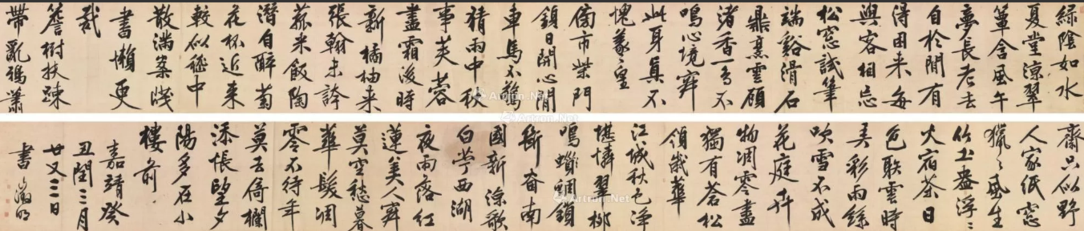 綠陰如水
夏堂涼翠
簟含風午
夢長老去
自於閒有
得困來每
與客相忘
松窗試筆
端谿滑石
鼎烹雲顧
渚香一鳥不
鳴心境寂
此身真不
愧羲皇
市柴門
鎖日閒心閒
車馬不驚
猜雨中秋
事芙蓉
盡霜後時
新橘柚來
張翰未誇
菰米飯陶
潛自醉菊
花杯近來
較似嵇中
散滿案牋
書懶更
裁
簷樹扶疎
帶亂鴉蕭
齋只似野
人家紙窗
獵〻風生
竹土盎浮〻
火宿茶日
色聯雲時
弄彩雨絲
吹雪不成
花庭卉
物凋零盡
獨有蒼松
領歲華
江城秋色淨
堪憐翠柳
鳴蜩鎖
南
國新涼歌
白苧西湖
夜雨落紅
蓮美人寂
莫空愁暮
華髮凋
零不待年
莫去倚欄
添悵望夕
陽多在小
樓前
嘉靖癸
丑閏三月
廿又三日
書 徵明